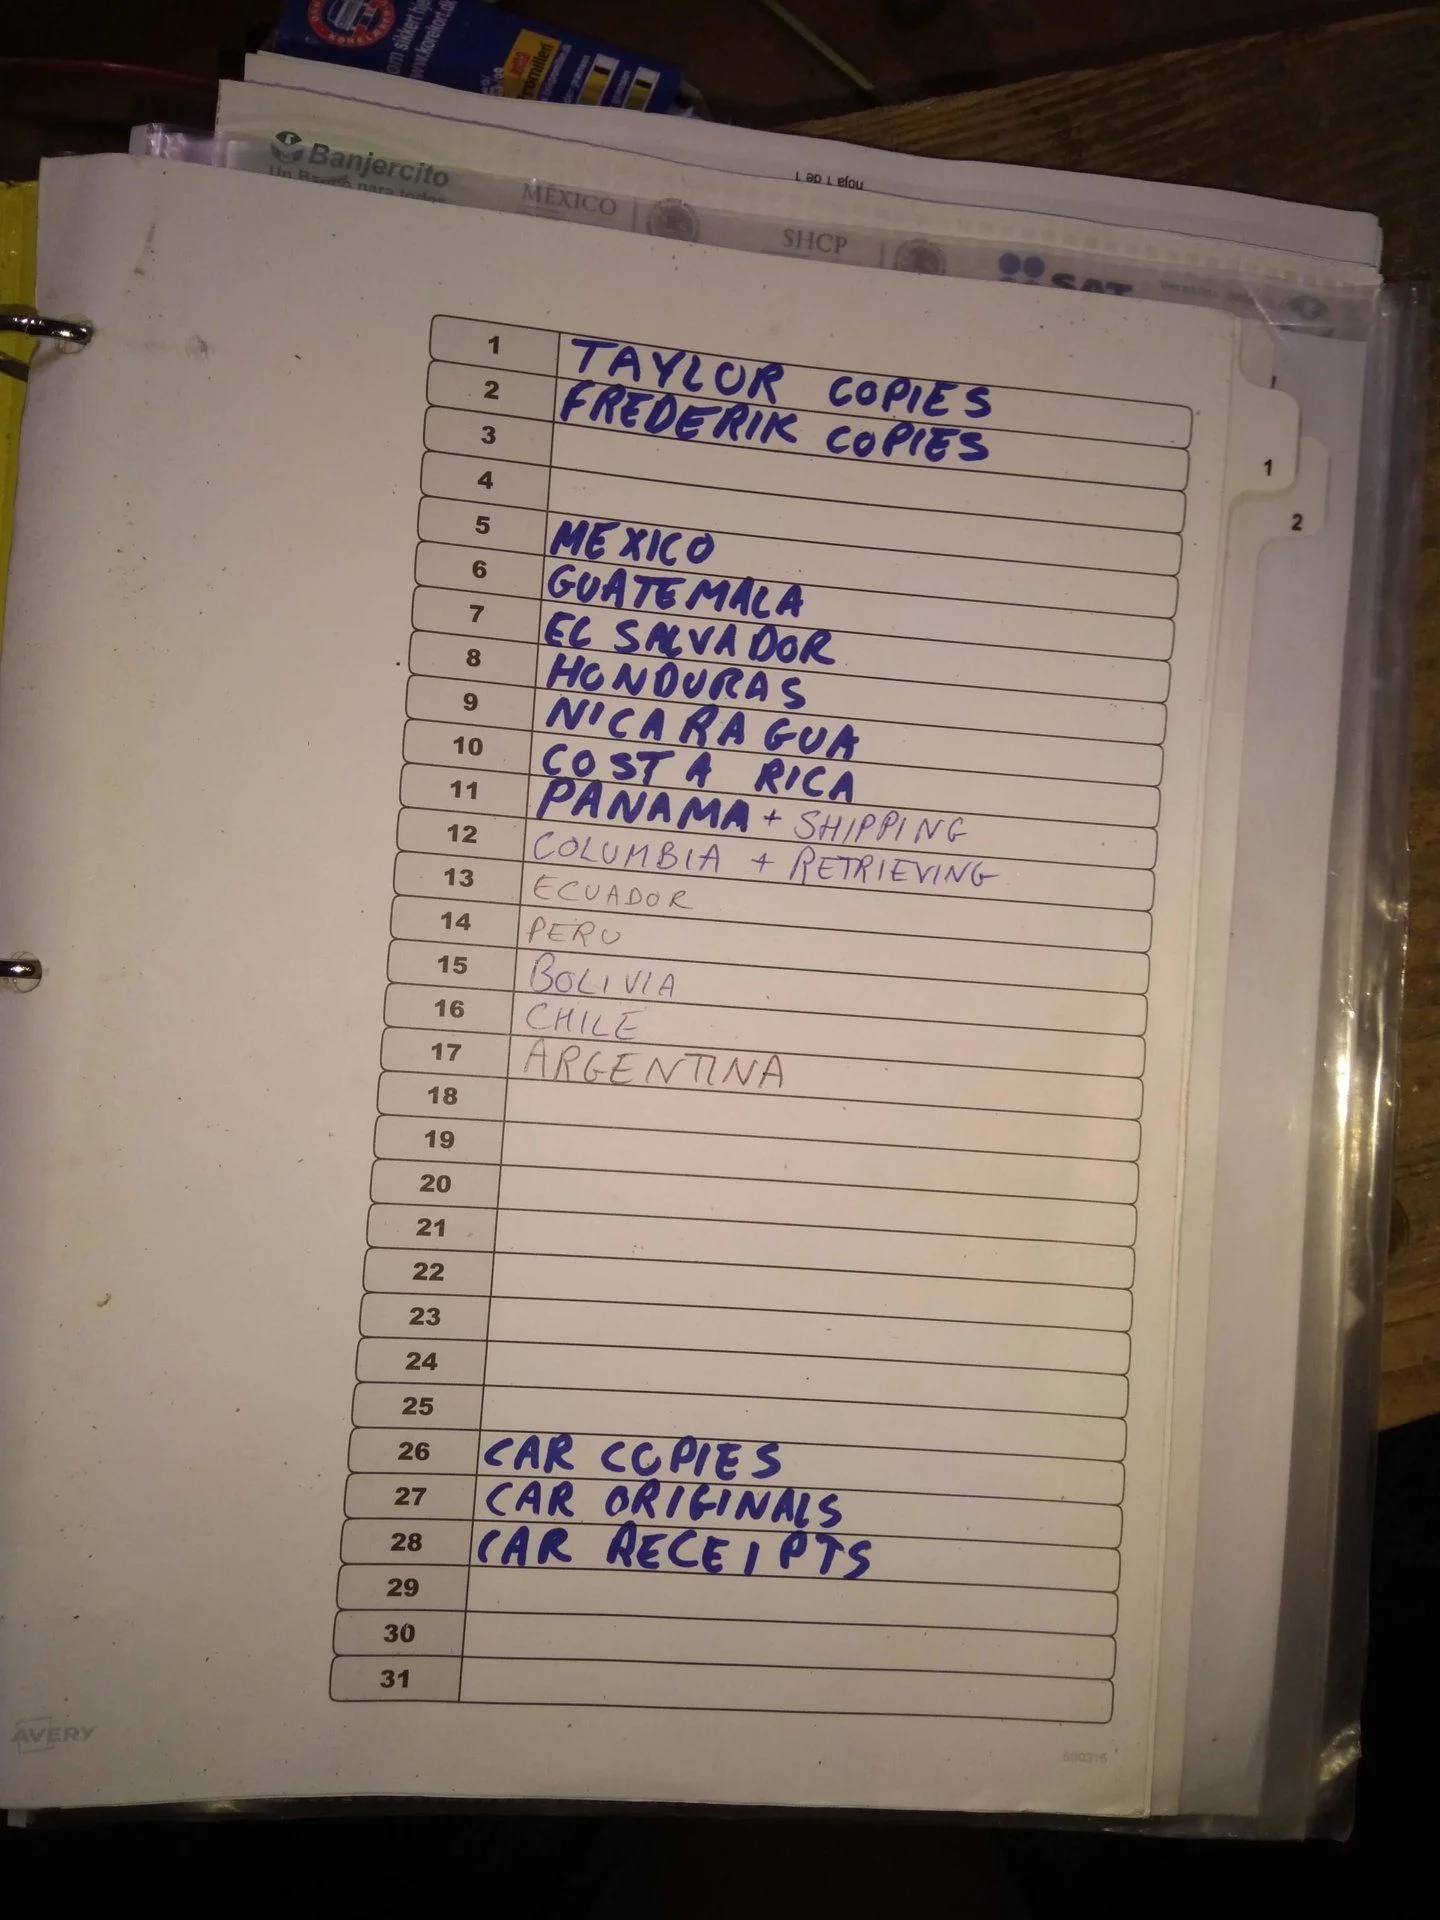 www.korekort.dk
Banjercito
Un Banco para todos
MÉXICO
SHCP
SAT
hoja 1 de 1
1 TAYLOR COPIES
2 FREDERIK COPIES
3
4
5 MEXICO
6 GUATEMALA
7 EL SALVADOR
8 HONDURAS
9 NICARAGUA
10 COSTA RICA
11 PANAMA + SHIPPING
12 COLUMBIA + RETRIEVING
13 ECUADOR
14 PERU
15 BOLIVIA
16 CHILE
17 ARGENTINA
18
19
20
21
22
23
24
25
26 CAR COPIES
27 CAR ORIGINALS
28 CAR RECEIPTS
29
30
31
1
2
AVERY